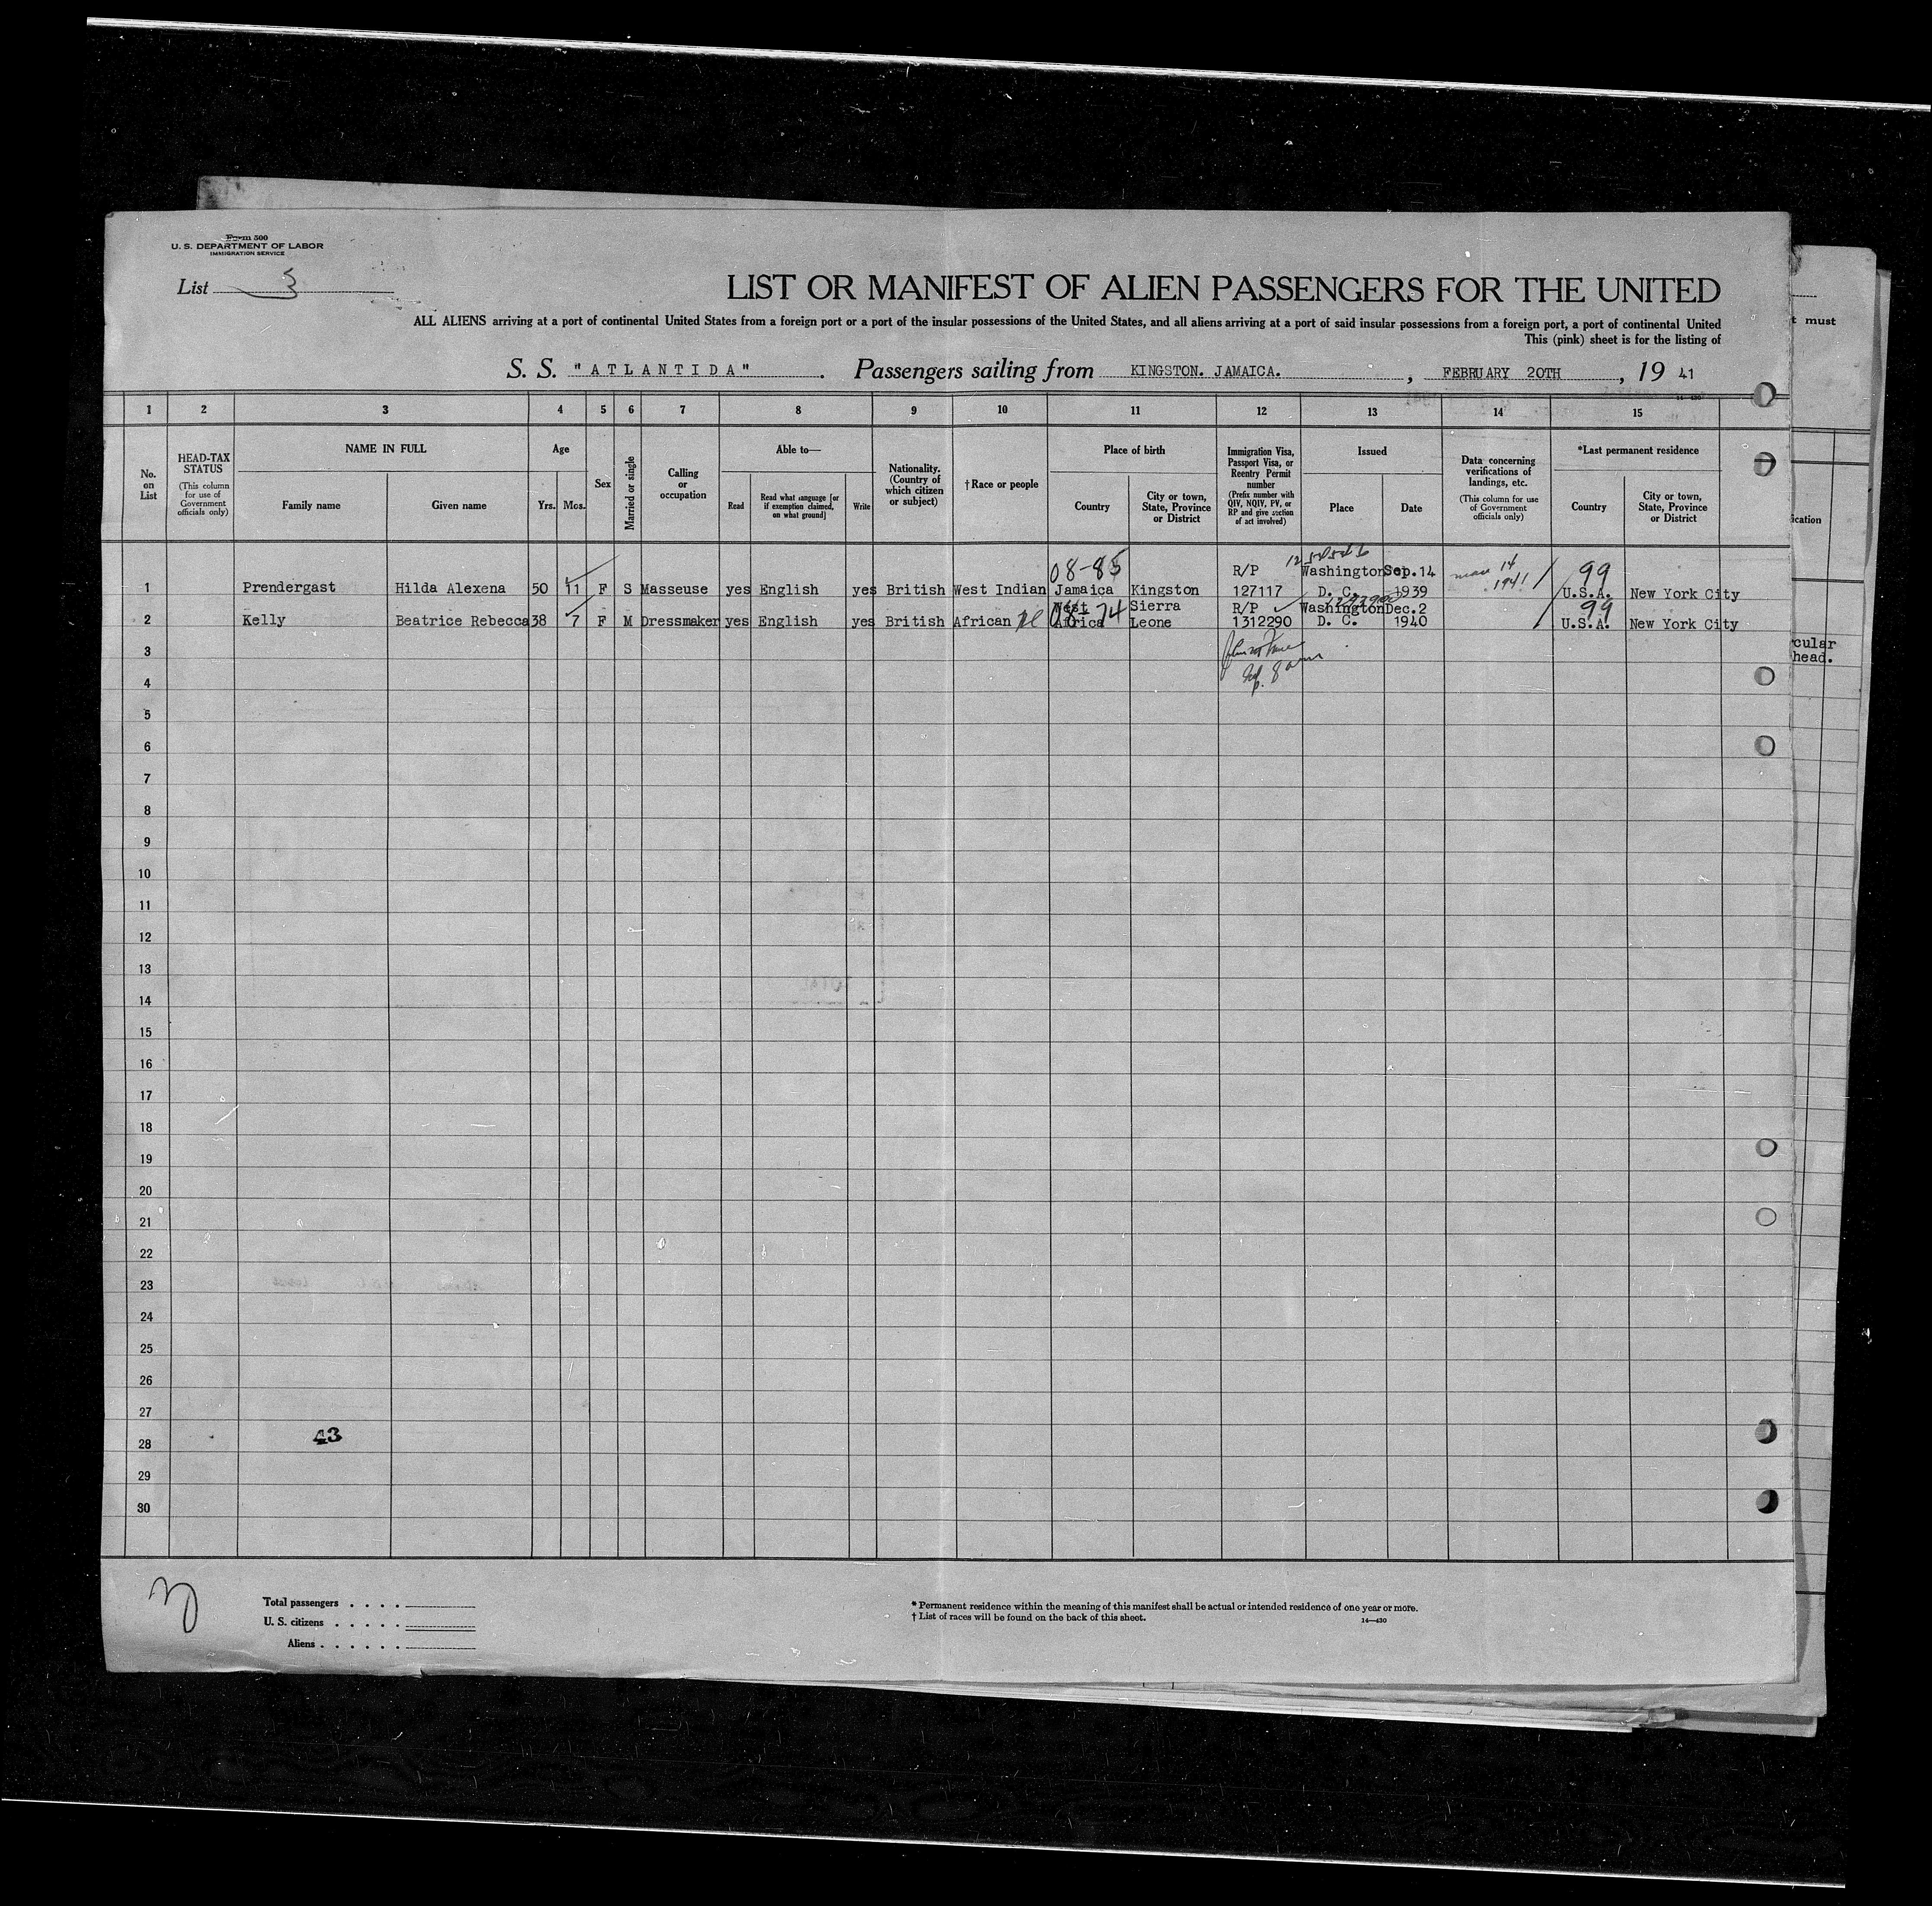 Form 500
U. S. DEPARTMENT OF LABOR
IMMIGRATION SERVICE
List 3
LIST OR MANIFEST OF ALIEN PASSENGERS FOR THE UNITED
ALL ALIENS arriving at a port of continental United States from a foreign port or a port of the insular possessions of the United States, and all aliens arriving at a port of said insular possessions from a foreign port, a port of continental United
This (pink) sheet is for the listing of
S. S. "ATLANTIDA" . Passengers sailing from KINGSTON. JAMAICA. , FEBRUARY 20TH , 19 41
t must
1 2 3 4 5 6 7 8 9 10 11 12 13 14 15
No. on List
HEAD-TAX STATUS (This column for use of Government officials only)
NAME IN FULL
Family name Given name
Age
Yrs. Mos.
Sex
Married or single
Calling or occupation
Able to—
Read
Read what language [or if exemption claimed, on what ground]
Write
Nationality. (Country of which citizen or subject)
†Race or people
Place of birth
Country
City or town, State, Province or District
Immigration Visa, Passport Visa, or Reentry Permit number (Prefix number with QIV, NQIV, PV, or RP and give section of act involved)
Issued
Place Date
Data concerning verifications of landings, etc. (This column for use of Government officials only)
*Last permanent residence
Country
City or town, State, Province or District
ication
08-85 R/P Washington Sep.14 mar 14 1941 99
1 Prendergast Hilda Alexena 50 11 F S Masseuse yes English yes British West Indian Jamaica Kingston 127117 D. C. 1939 U.S.A. New York City
West Sierra R/P Washington Dec.2 99
2 Kelly Beatrice Rebecca 38 7 F M Dressmaker yes English yes British African 08-74 Africa Leone 1312290 D. C. 1940 U.S.A. New York City
3
rcular
head.
4
5
6
7
8
9
10
11
12
13
14
15
16
17
18
19
20
21
22
23
24
25
26
27
43
28
29
30
Total passengers . . . .
U. S. citizens . . . . .
Aliens . . . . . .
* Permanent residence within the meaning of this manifest shall be actual or intended residence of one year or more.
† List of races will be found on the back of this sheet.
14—430